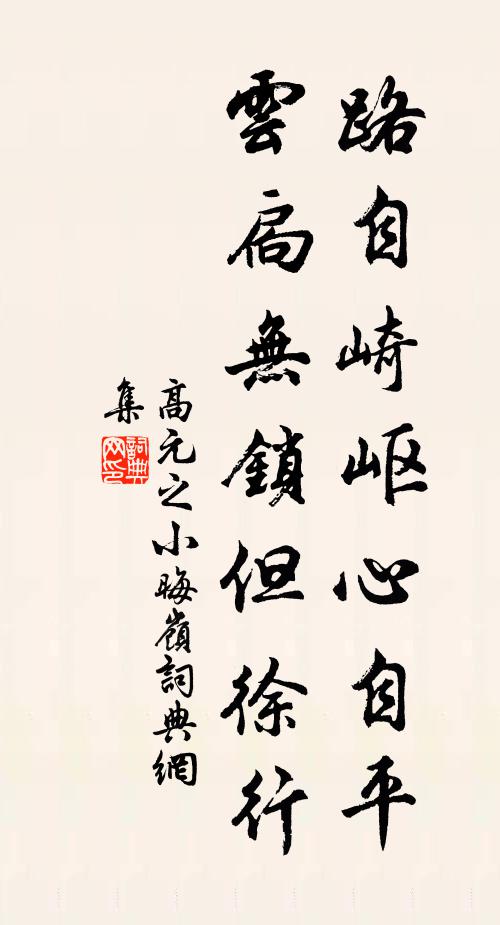 路自崎岖心自平
雲扃無鎖但徐行
高元之小晦嶺詞典網
集
詞典网印